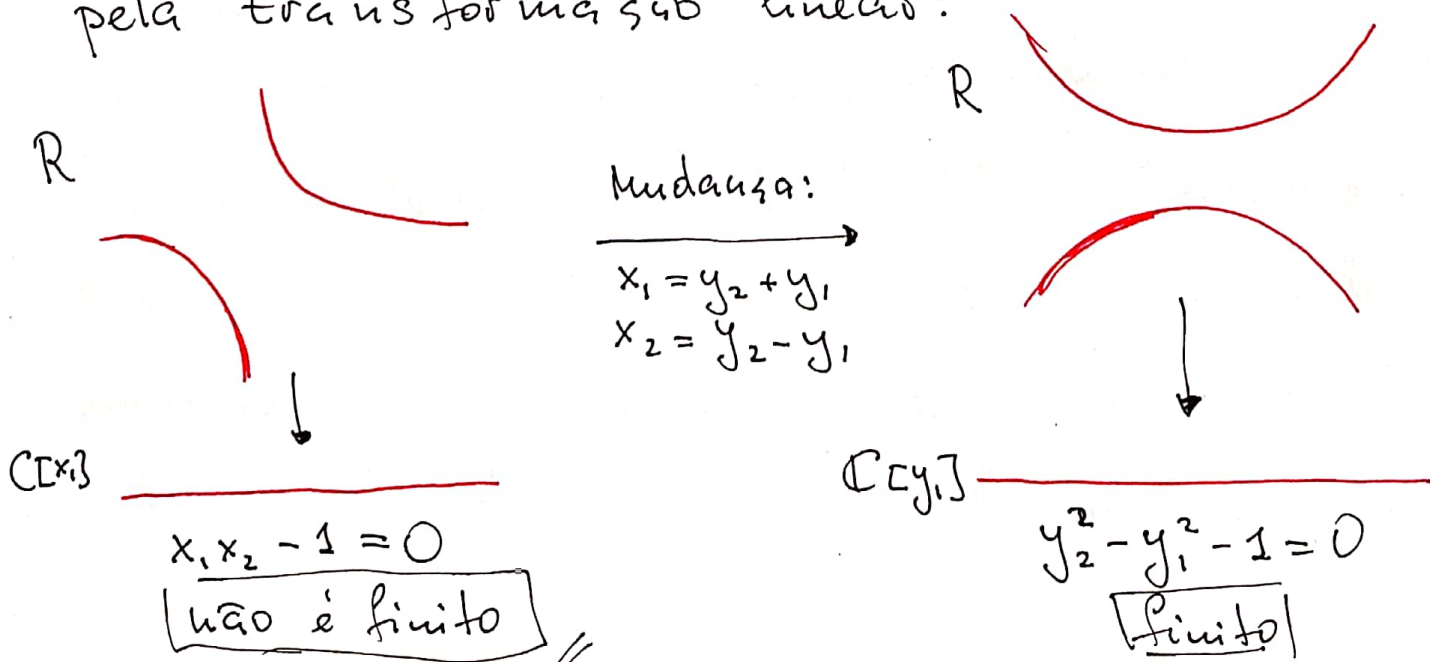 pela transformação linear.
R
R
Mudança:
x₁ = y₂ + y₁
x₂ = y₂ - y₁
C[x₁]
ℂ[y₁]
x₁x₂ - 1 = 0
não é finito
y₂² - y₁² - 1 = 0
finito